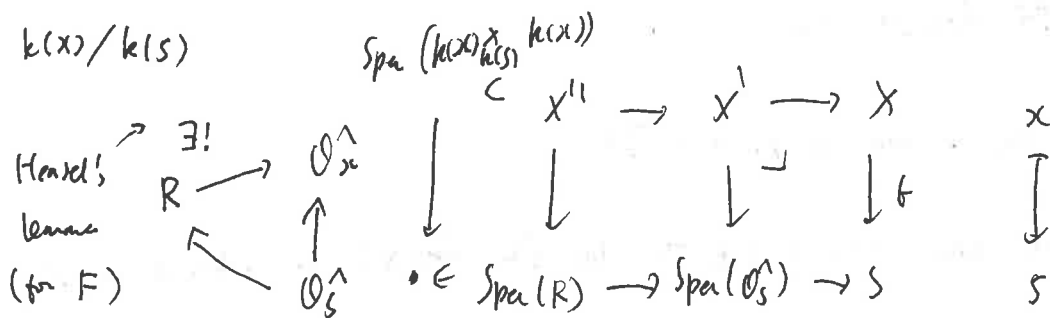 k(x)/k(s)
Spec (k(x) ×_{k(s)} k(x))
⊂ X'' → X' → X x
Hensel's ∃! O_x^
lemma R f
(for F) O_s^ • ∈ Spec(R) → Spec(O_s^) → S s